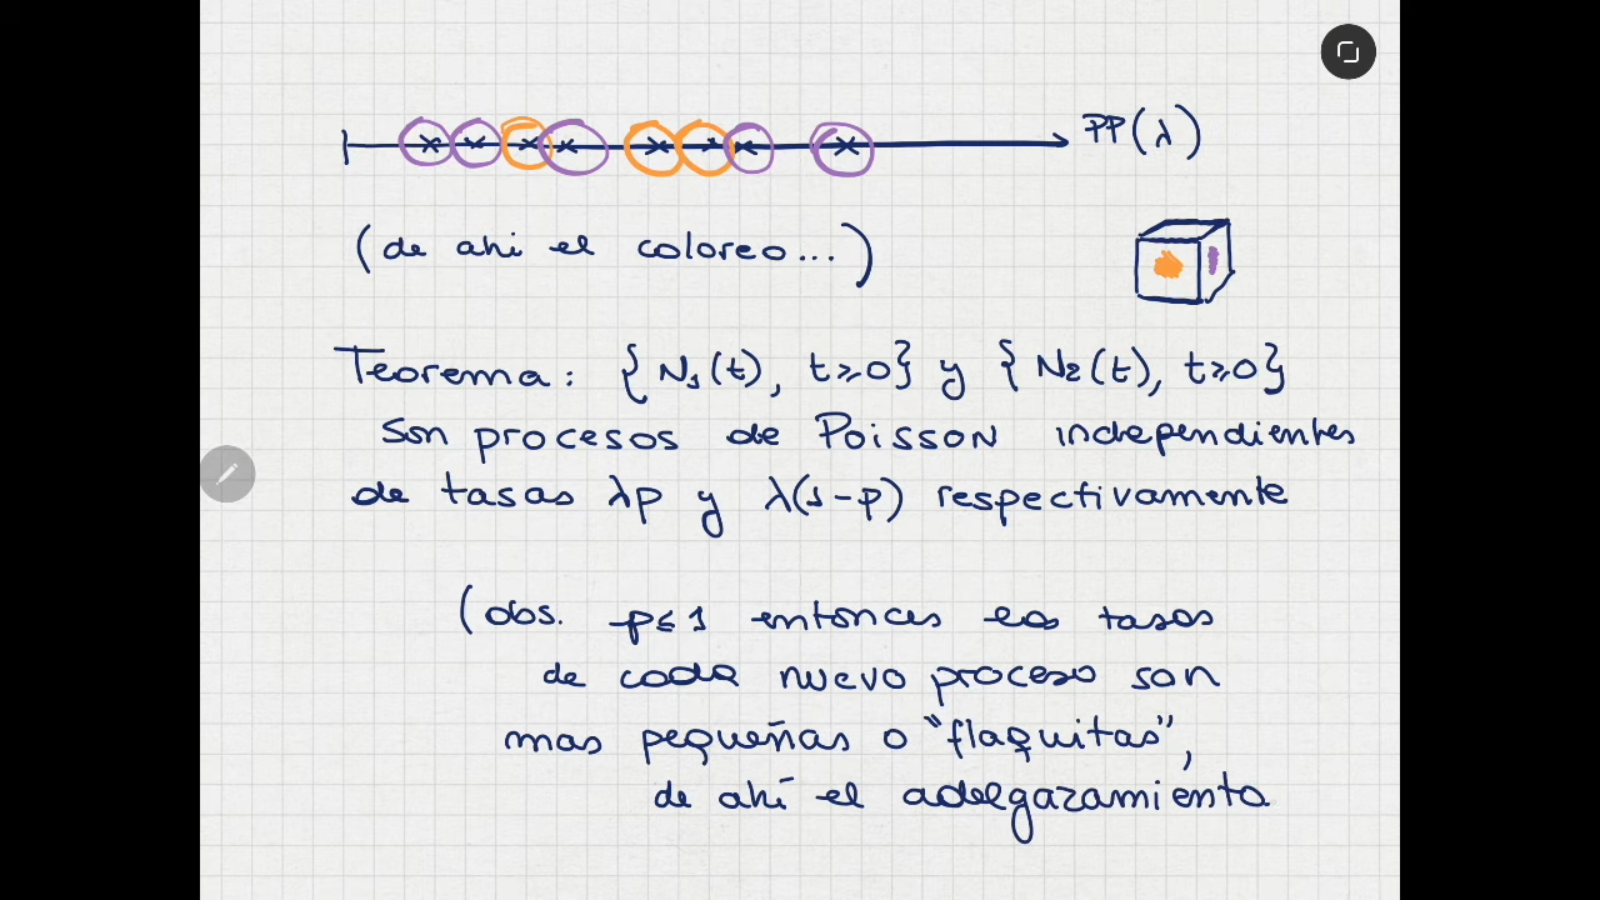 PP(λ)
(de ahi el coloreo...)
Teorema: {N₁(t), t≥0} y {N₂(t), t≥0}
son procesos de Poisson independientes
de tasas λp y λ(1-p) respectivamente
(obs. p≤1 entonces las tasas
de cada nuevo proceso son
mas pequeñas o "flaquitas",
de ahí el adelgazamiento.